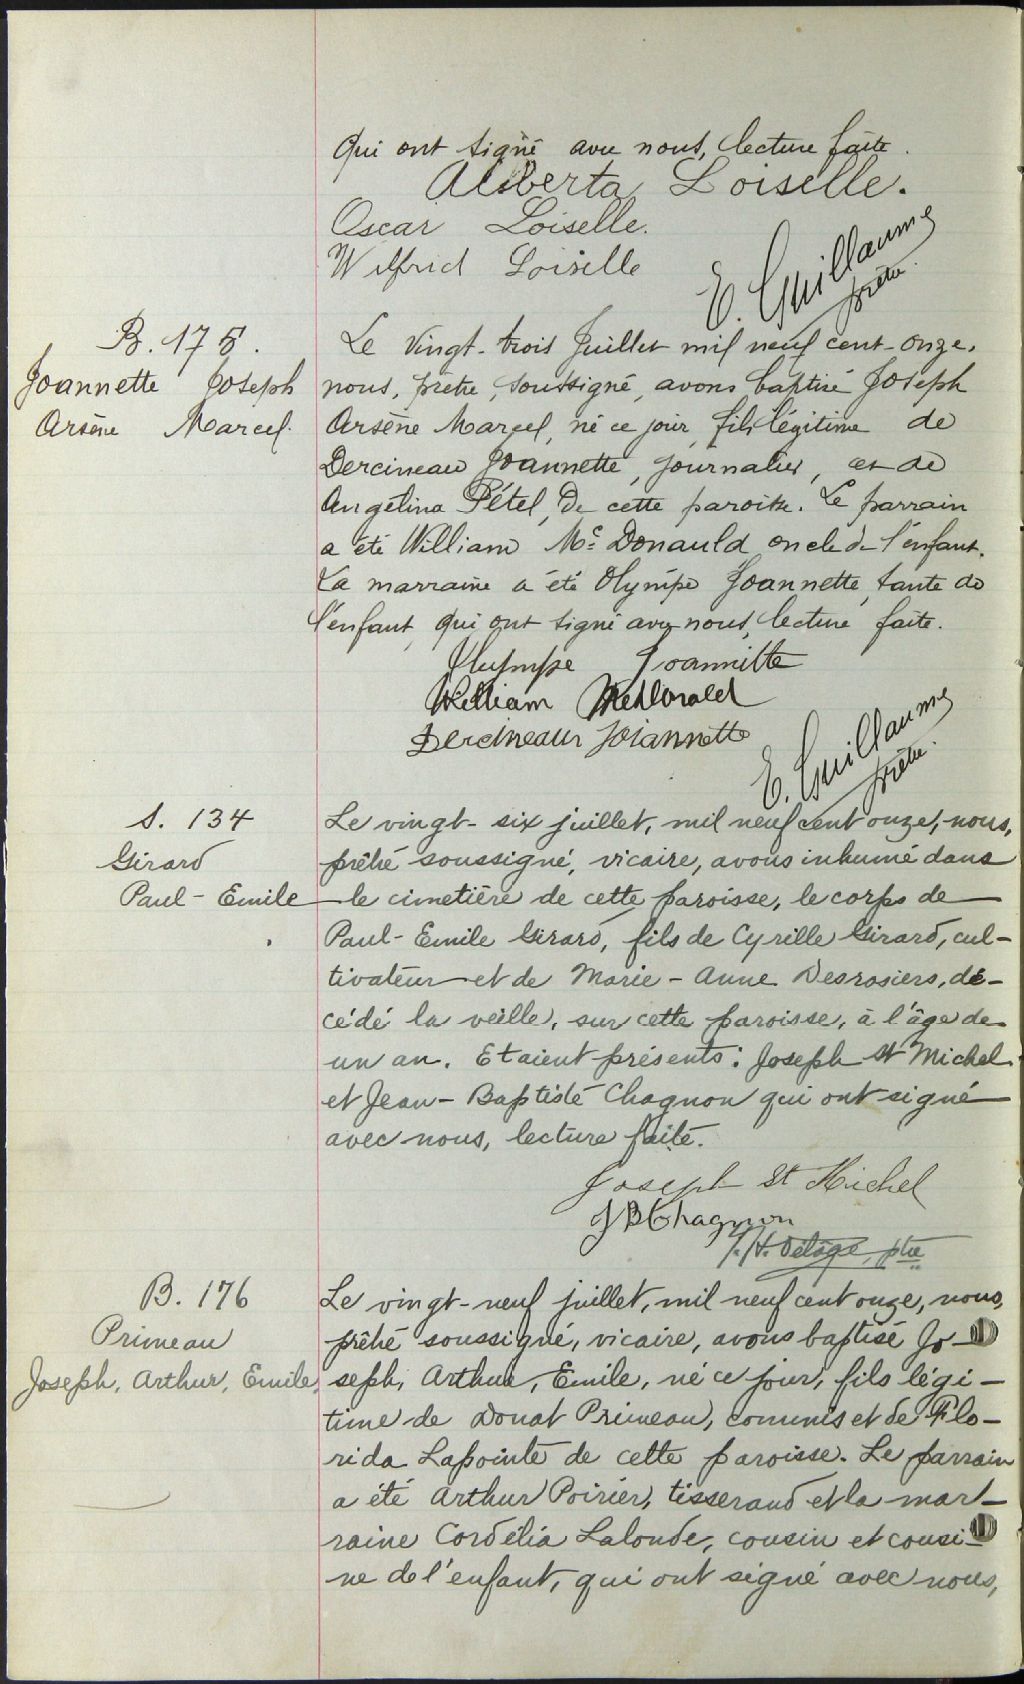 qui ont signé avec nous, lecture faite.
Aliberta Loiselle.
Oscar Loiselle.
Wilfrid Loiselle
E. Guillaume
prêtre.
B. 175.
Joannette Joseph
Arsène Marcel.
Le vingt-trois Juillet mil neuf cent-onze,
nous, prêtre, soussigné, avons baptisé Joseph
Arsène Marcel, né ce jour, fils légitime de
Dercineau Joannette, journalier, et de
Angélina Pétel, De cette paroisse. Le parrain
a été William Mc Donauld oncle de l'enfant.
La marraine a été Olympe Joannette, tante de
l'enfant, qui ont signé avec nous, lecture faite.
Olympe Joannitte
William McDonald
Dercineaur Joiannette
E. Guillaume
prêtre.
S. 134
Girard
Paul-Emile
Le vingt-six juillet, mil neuf cent onze, nous,
prêtre soussigné, vicaire, avons inhumé dans
le cimetière de cette paroisse, le corps de
Paul-Emile Girard, fils de Cyrille Girard, cul-
tivateur et de Marie-Anne Desrosiers, dé-
cédé la veille, sur cette paroisse, à l'âge de
un an. Etaient présents: Joseph St Michel
et Jean-Baptiste Chagnon qui ont signé
avec nous, lecture faite.
Joseph St Michel
J B Chagnon
J. H. Delâge, ptre
B. 176
Primeau
Joseph, Arthur, Emile,
Le vingt-neuf juillet, mil neuf cent onze, nous,
prêtre soussigné, vicaire, avons baptisé Jo-
seph, Arthur, Emile, né ce jour, fils légi-
time de Donat Primeau, commis et de Flo-
rida Lapointe de cette paroisse. Le parrain
a été Arthur Poirier, tisserand et la mar-
raine Cordélia Lalonde, cousin et cousi-
ne de l'enfant, qui ont signé avec nous,